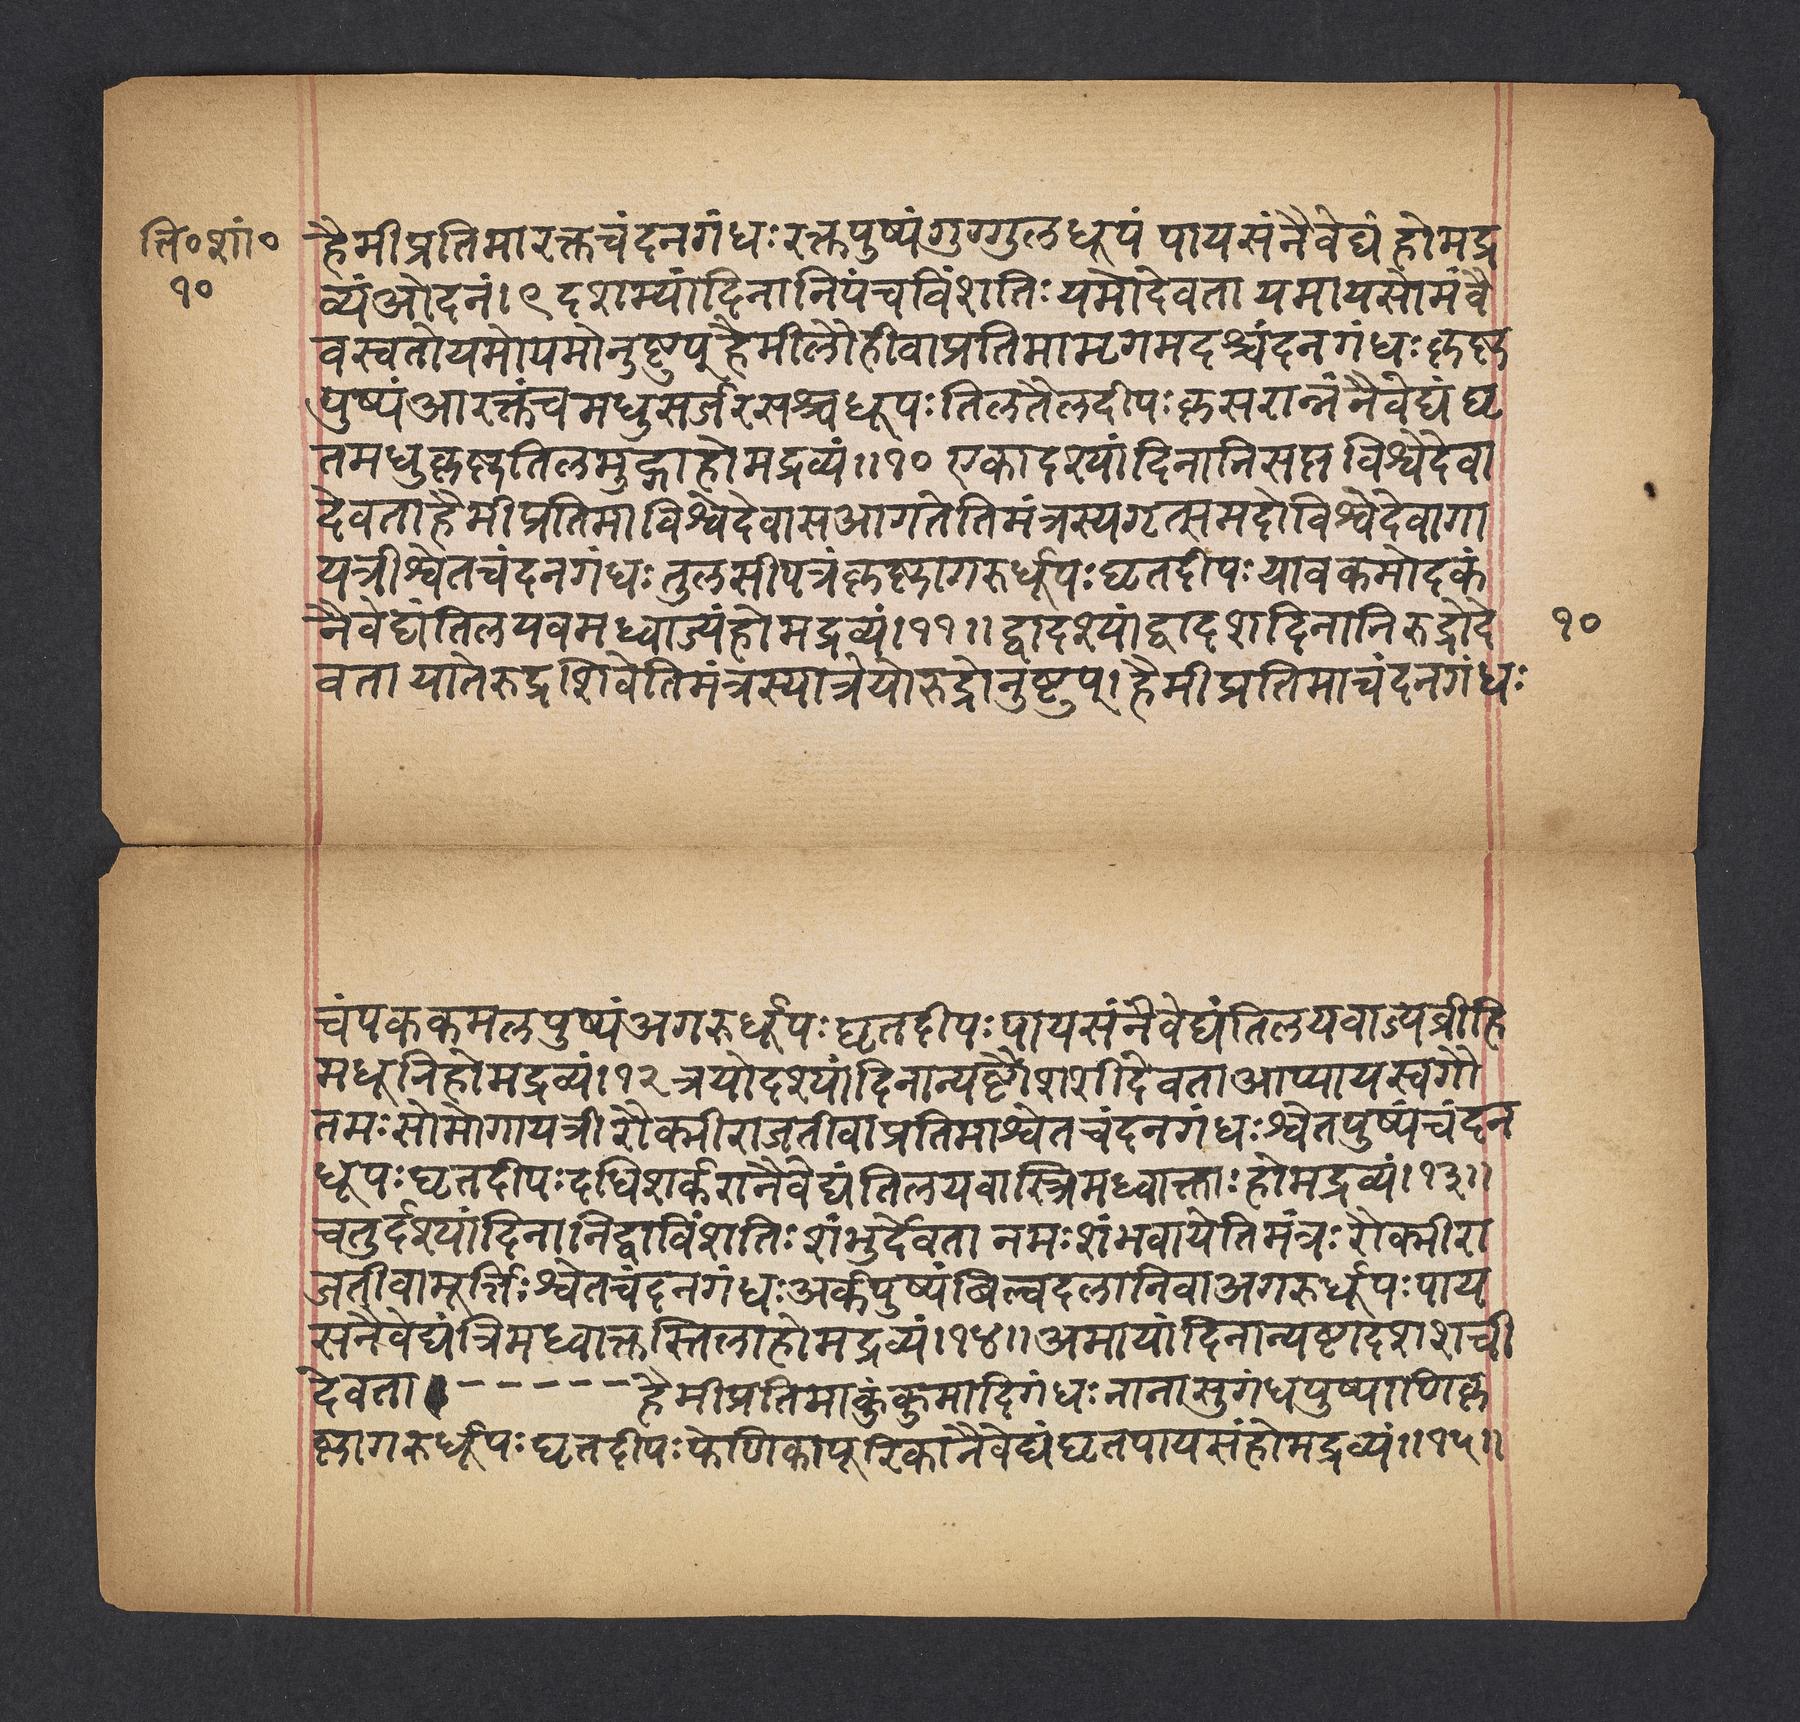 ति०शां०
१०
हैमीप्रतिमारक्तचंदनगंधःरक्तपुष्पंगुग्गुलधूपं पायसंनैवेद्यं होमद्र
व्यंओदनं।९ दशम्यांदिनानिपंचविंशतिःयमोदेवता यमायसोमंवै
वस्वतोयमोयमोनुष्टुप्हैमीलौहीवाप्रतिमामृगमदश्चंदनगंधःकृष्ण
पुष्पंआरक्तंचमधुसर्जरसश्चधूपःतिलतैलदीपःकृसरान्नंनैवेद्यंघृ
तमधुकृष्णतिलमुद्गाहोमद्रव्यं॥१० एकादश्यांदिनानिसप्त विश्वेदेवा
देवताहैमीप्रतिमाविश्वेदेवासआगतेतिमंत्रस्यगृत्समदोविश्वेदेवागा
यत्रीश्वेतचंदनगंधः तुलसीपत्रंकृष्णागरुर्धूपःघृतदीपःयावकमोदकं
नैवेद्यंतिलयवमध्वाज्यंहोमद्रव्यं।११॥द्वादश्यांद्वादशदिनानिरुद्रोदे
१०
वता यातेरुद्रशिवेतिमंत्रस्यात्रेयोरुद्रोनुष्टुप्।हैमीप्रतिमाचंदनगंधः
चंपककमलपुष्पंअगरुर्धूपःघृतदीपःपायसंनैवेद्यंतिलयवाज्यव्रीहि
मधूनिहोमद्रव्यं।१२ त्रयोदश्यांदिनान्यष्टौशशीदेवताआप्यायस्वगौ
तमःसोमोगायत्रीरौक्मीराजतीवाप्रतिमाश्वेतचंदनगंधःश्वेतपुष्पंचंदन
धूपःघृतदीपःदधिशर्करानैवेद्यंतिलयवास्त्रिमध्वाक्ताःहोमद्रव्यं।१३॥
चतुर्दश्यांदिनानिद्वाविंशतिःशंभुर्देवता नमःशंभवायेतिमंत्रःरौक्मीरा
जतीवामूर्त्तिःश्वेतचंदनगंधःअर्कपुष्पंबिल्वदलानिवाअगरुर्धूपःपाय
सनैवेद्यंत्रिमध्वाक्तस्तिलाहोमद्रव्यं।१४॥अमायांदिनान्यष्टादशशची
देवता। ------हैमीप्रतिमाकुंकुमादिगंधःनानासुगंधपुष्पाणिकृ
ष्णागरुर्धूपःघृतदीपःफेणिकापूरिकानैवेद्यंघृतपायसंहोमद्रव्यं॥१५॥